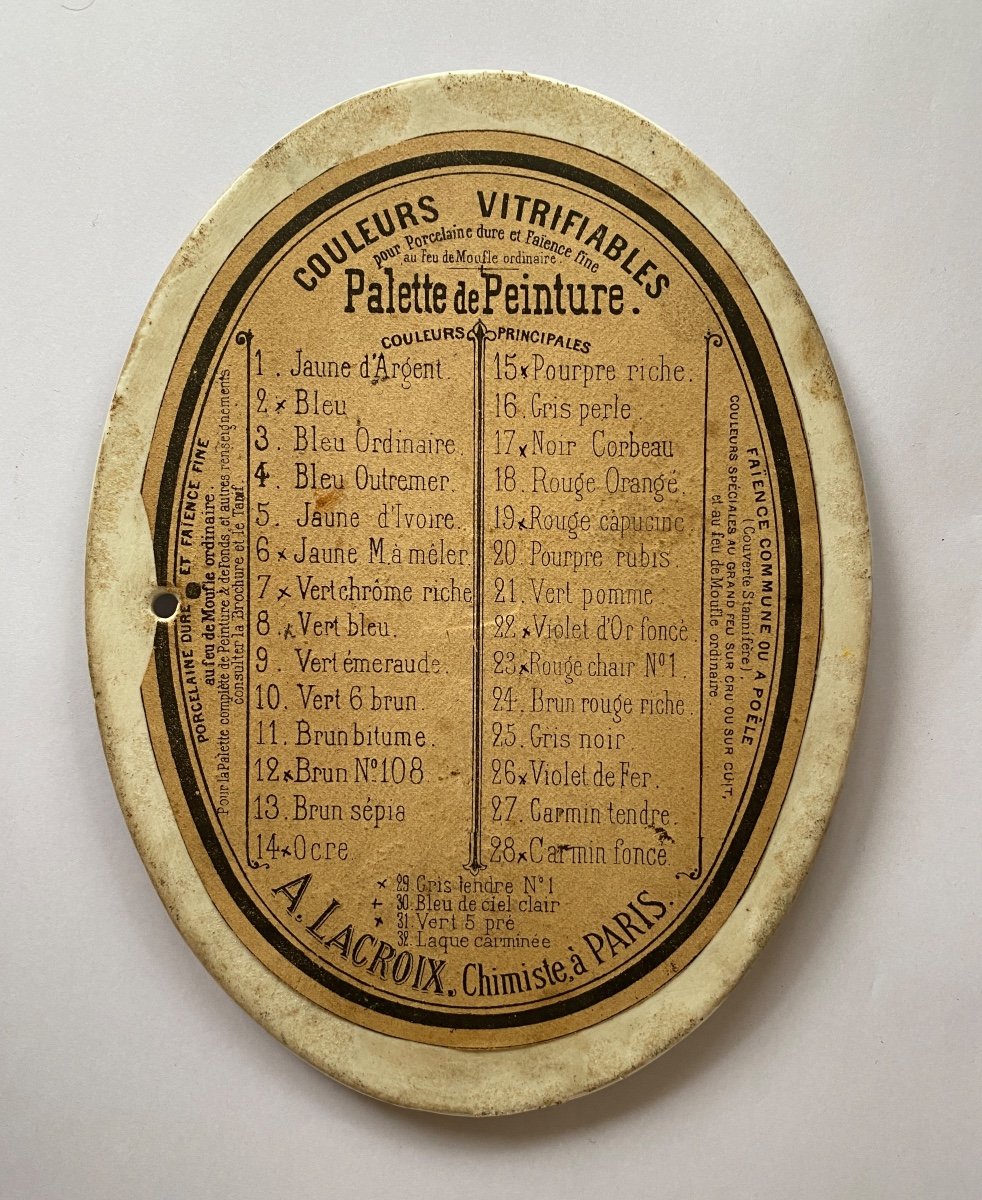 COULEURS VITRIFIABLES
pour Porcelaine dure et Faïence fine
au feu de Moufle ordinaire
Palette de Peinture.
COULEURS PRINCIPALES
1. Jaune d'Argent.
2 x Bleu
3. Bleu Ordinaire.
4. Bleu Outremer.
5. Jaune d'Ivoire.
6 x Jaune M. à mêler
7 x Vert chrôme riche
8 x Vert bleu.
9. Vert émeraude.
10. Vert 6 brun.
11. Brun bitume.
12 x Brun Nº 108
13. Brun sépia
14 x Ocre
15 x Pourpre riche.
16. Gris perle.
17 x Noir Corbeau
18. Rouge Orangé.
19 x Rouge capucine
20. Pourpre rubis.
21. Vert pomme
22 x Violet d'Or foncé
23 x Rouge chair Nº 1
24. Brun rouge riche.
25. Gris noir
26 x Violet de Fer.
27. Carmin tendre.
28 x Carmin foncé.
x 29. Gris tendre Nº 1
+ 30. Bleu de ciel clair
x 31. Vert 5 pré
32. Laque carminée
A. LACROIX, Chimiste, à PARIS.
PORCELAINE DURE ET FAÏENCE FINE
au feu de Moufle ordinaire.
Pour la Palette complète de Peinture & de Fonds, et autres renseignements
consulter la Brochure et le Tarif.
FAÏENCE COMMUNE OU A POÊLE
(Couverte Stannifère)
COULEURS SPÉCIALES AU GRAND FEU SUR CRU OU SUR CUIT,
et au feu de Moufle ordinaire